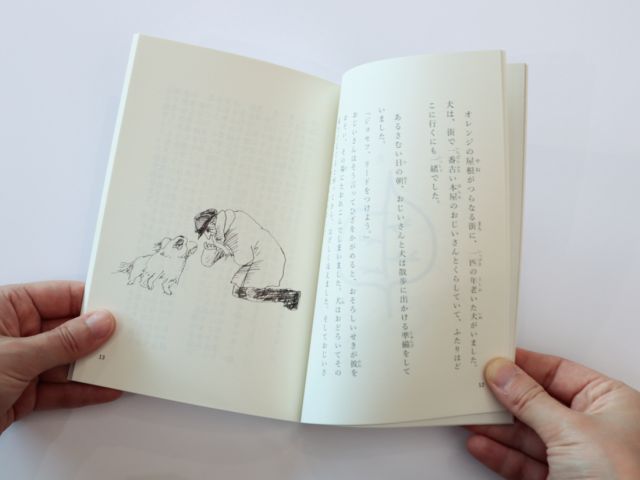 オレンジの屋根がつらなる街に、一匹の年老いた犬がいました。
犬は、街で一番古い本屋のおじいさんとくらしていて、ふたりはど
こに行くにも一緒でした。
あるさむい日の朝、おじいさんと犬は散歩に出かける準備をして
いました。
「ジョセフ、リードをつけよう。」
おじいさんはそう言ってひざをかがめると、おそろしいせきが彼を
その場にたおれこんでしまいました。犬はおどろいてその
ほえました。そしておじいさ
12
13